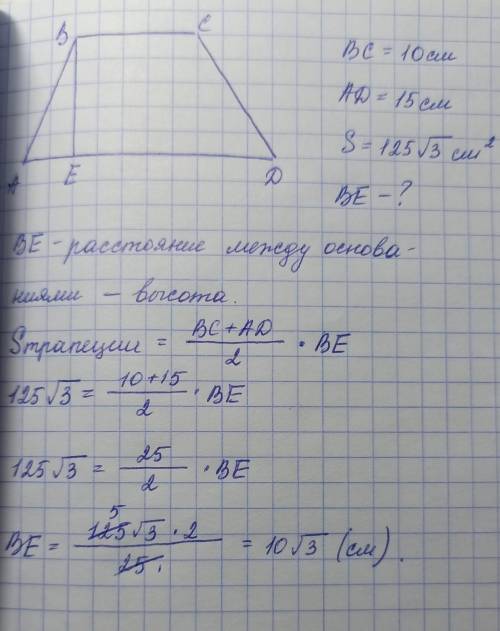 B C
A E D
BC = 10 см
AD = 15 см
S = 125√3 см²
BE - ?
BE - расстояние между основа-
ниями - высота.
Sтрапеции = (BC + AD)/2 · BE
125√3 = (10 + 15)/2 · BE
125√3 = 25/2 · BE
5
BE = (125√3 · 2)/25. = 10√3 (см).